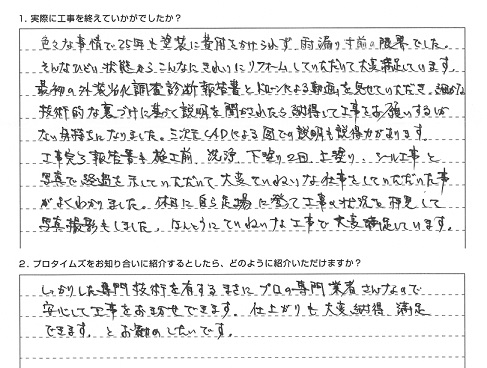 1. 実際に工事を終えていかがでしたか？
色々な事情で25年も塗装に費用をかけられず、雨漏り寸前の限界でした。
そんなひどい状態からこんなにきれいにリフォームしていただいて大変満足しています。
最初の外装劣化調査診断報告書とドローンによる動画を見せていただき、細かな
技術的な裏づけに基って説明を聞かされたら納得して工事をお願いするしか
ない気持ちになりました。三次元CADによる図での説明も説得力があります。
工事完了報告書も施工前、洗浄、下塗り2回、上塗り、シール工事と
写真で経過を示していただいて大変ていねいな仕事をしていただいた事
がよくわかりました。休日に自ら足場に登って工事の状況を拝見して
写真撮影もしました。ほんとうにていねいな工事で大変満足しています。
2. プロタイムズをお知り合いに紹介するとしたら、どのように紹介いただけますか？
しっかりした専門技術を有するまさにプロの専門業者さんなので
安心して工事をおまかせできます。仕上がりも大変納得 満足
できます。とお勧めしたいです。